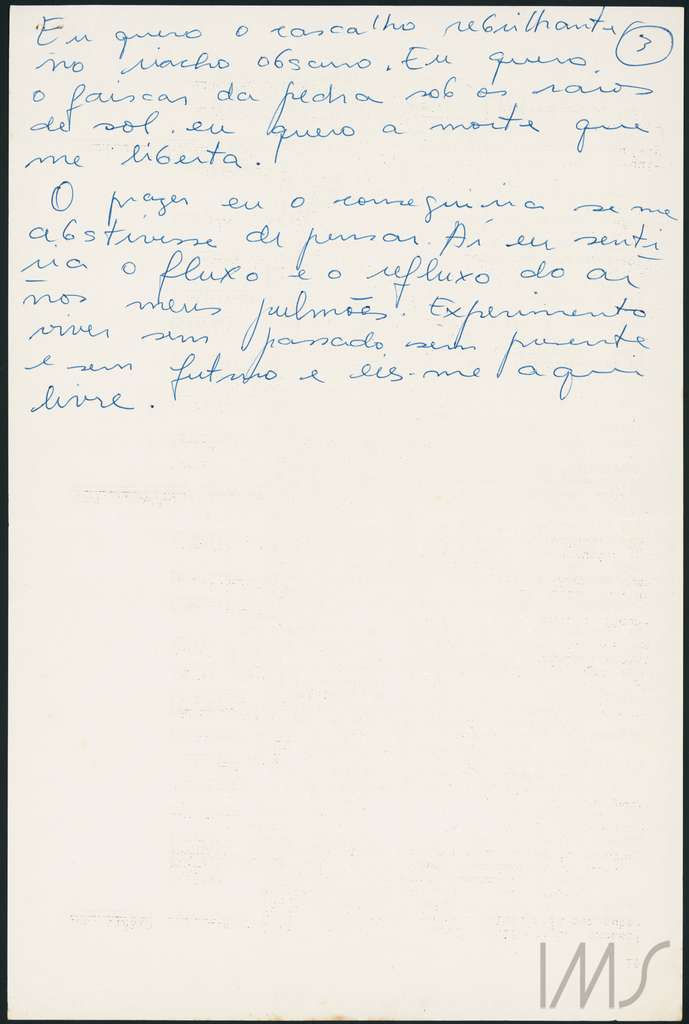 Eu quero o cascalho rebrilhante 3
no riacho obscuro. Eu quero
o faiscar da pedra sob os raios
de sol. eu quero a morte que
me liberta.
O prazer eu o conseguiria se me
abstivesse de pensar. Aí eu senti-
ria o fluxo e o refluxo do ar
nos meus pulmões. Experimento
viver sem passado sem presente
e sem futuro e eis-me aqui
livre.
IMS